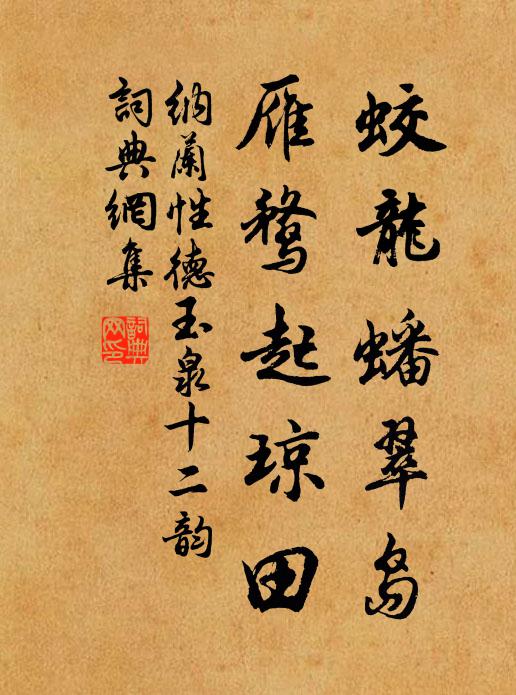 蛟龍蟠翠島
雁鶩起琼田
納蘭性德玉泉十二韵
詞典網集
詞典網印